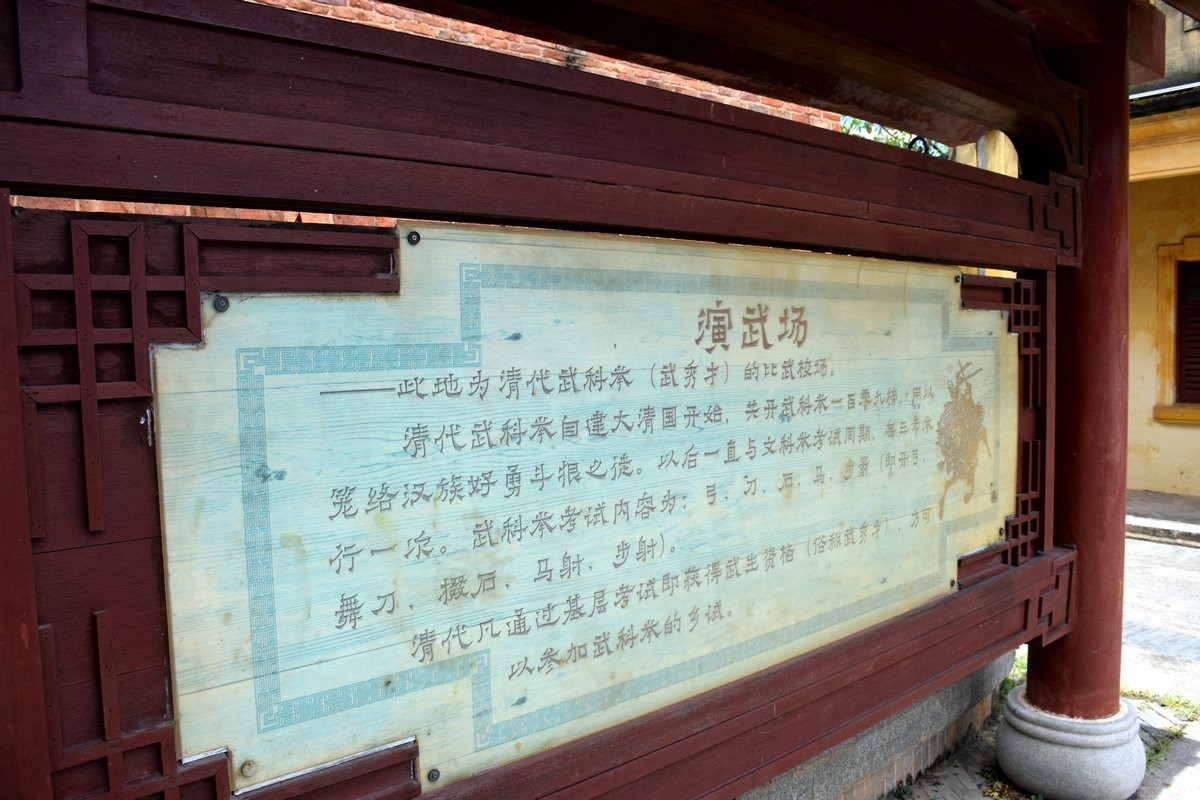 演武场
——此地为清代武科举（武秀才）的比武校场。
清代武科举自建大清国开始，共开武科举一百零九榜，用以
笼络汉族好勇斗狠之徒。以后一直与文科举考试同期，每三年来
行一次。武科举考试内容为：弓、刀、石、马、步箭（即开弓、
舞刀、掇石、马射、步射）。
清代凡通过基层考试即获得武生资格（俗称武秀才），方可
以参加武科举的乡试。